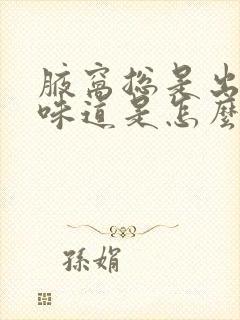 腋窩總是出
味道是怎麼
孫娟